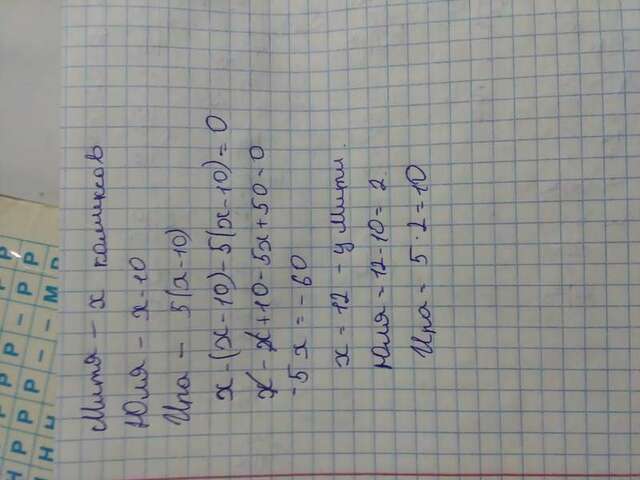 Митя – х комиксов
Юля – х-10
Ира – 5(х-10)
х-(х-10)-5(х-10)=0
х-х+10-5х+50=0
-5х=-60
х=12 – у Мити.
Юля=12-10=2
Ира = 5·2=10